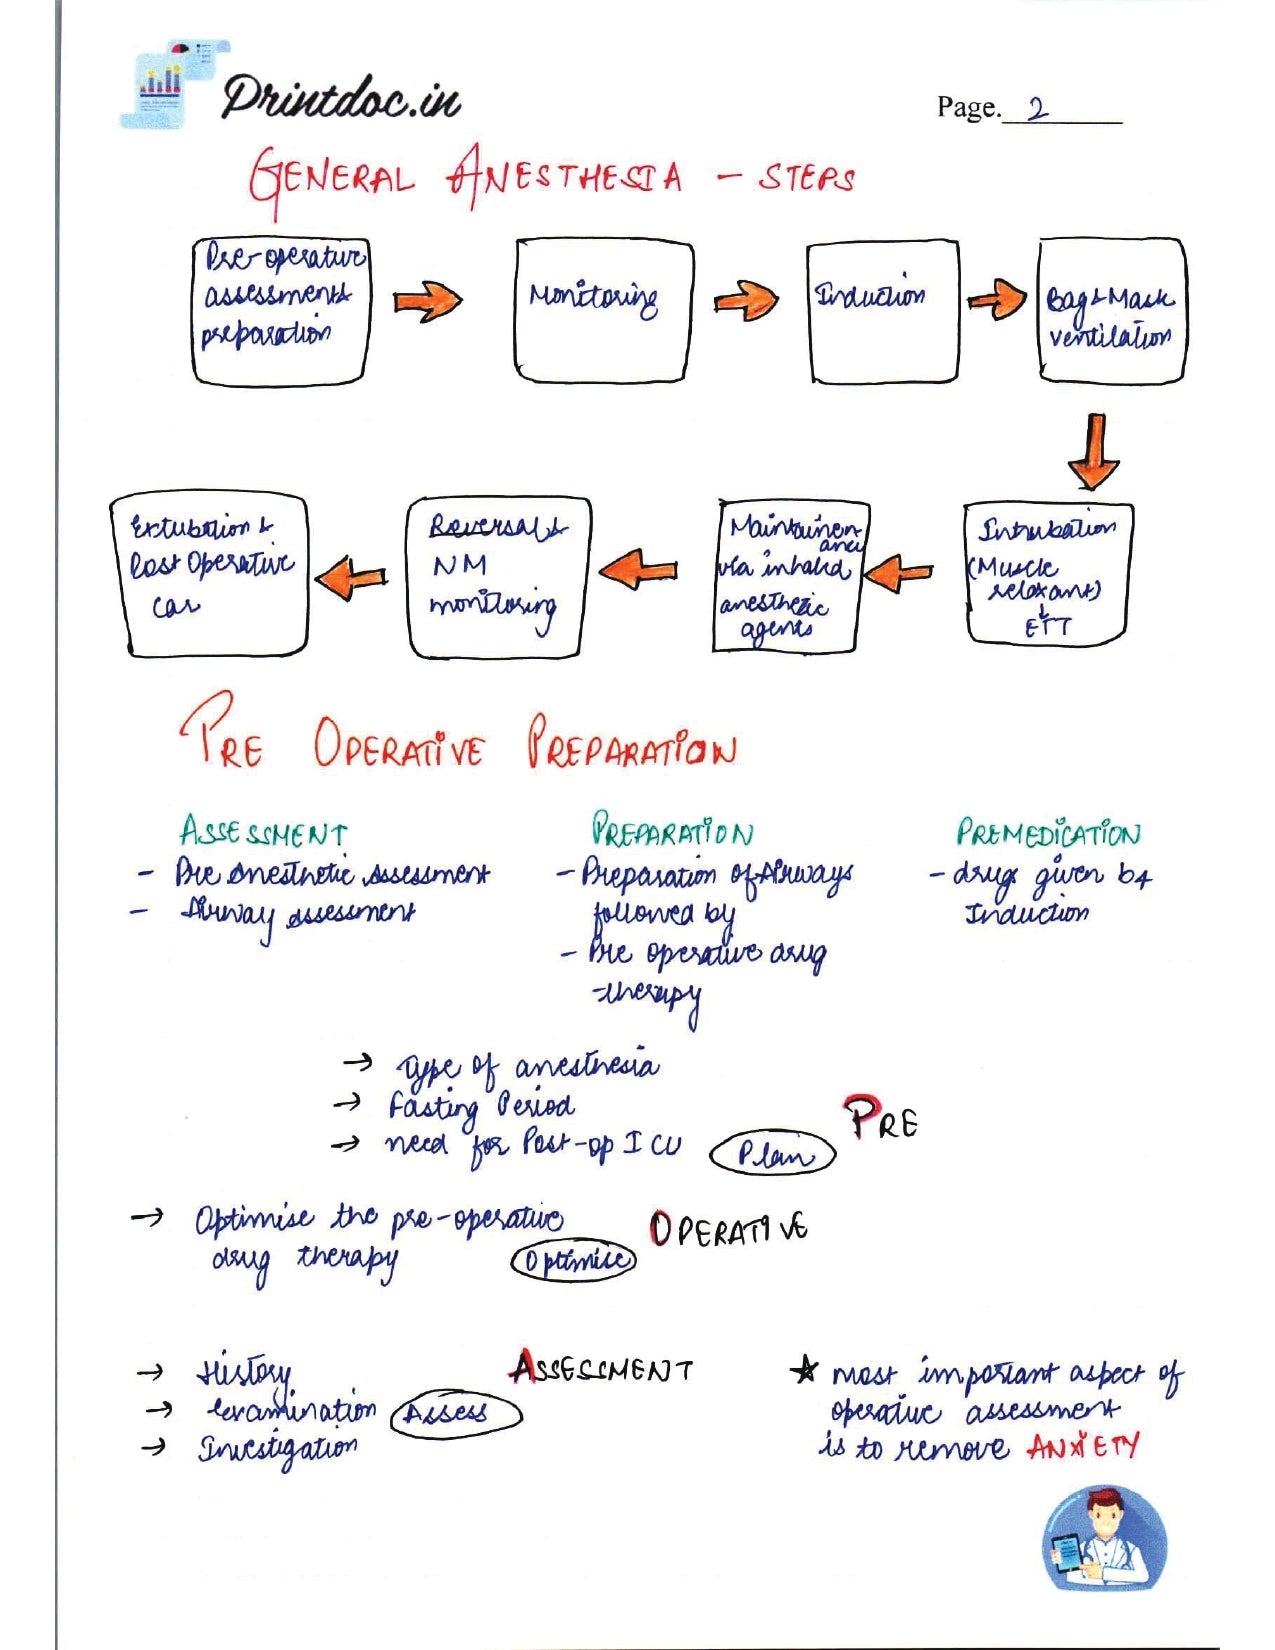 Printdoc.in
Page. 2
GENERAL ANESTHESIA - STEPS
Pre-operative
assessment &
preparation
Monitoring
Induction
Bag & Mask
ventilation
Extubation &
Post Operative
car
Reversal &
NM
monitoring
Maintainen
ance
via inhaled
anesthetic
agents
Intubation
(Muscle
relaxant)
↓
ETT
PRE OPERATIVE PREPARATION
ASSESSMENT
- Pre Anesthetic Assessment
- Airway assessment
PREPARATION
- Preparation of Airways
followed by
- Pre operative drug
therapy
PREMEDICATION
- drugs given b4
Induction
→ Type of anesthesia
→ Fasting Period
→ need for Post-op ICU
Plan
PRE
→ Optimise the pre-operative
drug therapy
Optimise
OPERATIVE
→ History
→ Examination
→ Investigation
Assess
ASSESSMENT
★ most important aspect of
operative assessment
is to remove ANXIETY